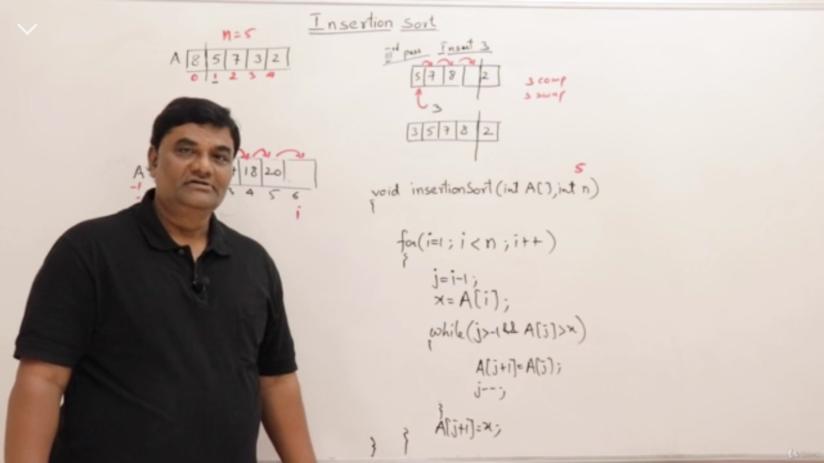 Insertion Sort
n=5
A 8 5 7 3 2
0 1 2 3 4
IIIrd pass Insert 3
5 7 8 2
3
3 comp
3 swap
3 5 7 8 2
A 18 20
-1 3 4 5 6
i
5
void insertionSort(int A[],int n)
{
for(i=1; i<n; i++)
{
j=i-1;
x=A[i];
while(j>-1 && A[j]>x)
{
A[j+1]=A[j];
j--;
}
A[j+1]=x;
}
}